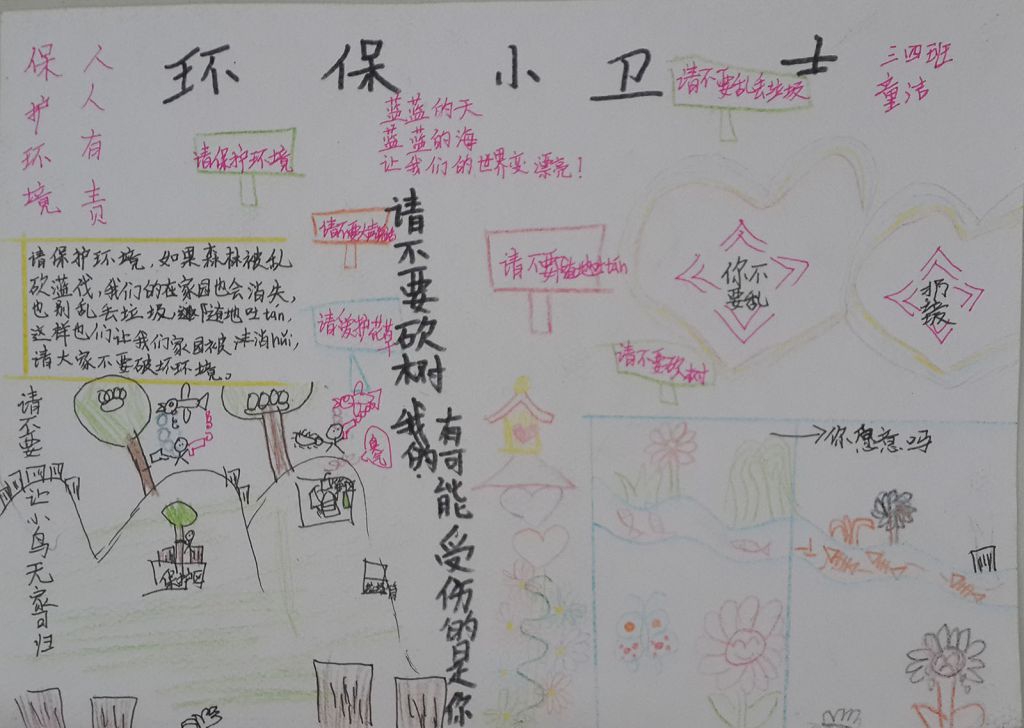 环保小卫士
三四班
童洁
保护环境
人人有责
蓝蓝的天
蓝蓝的海
让我们的世界变漂亮！
请不要乱丢垃圾
请保护环境
请不要
请不要随地吐tán
请爱护花草
请不要砍树
请保护环境,如果森林被乱
砍蓝伐,我们的在家园也会消失,
也别乱丢垃圾,随地吐tán,
这样也们让我们家园被消huǐ,
请大家不要破坏环境。
请不要砍树 我的
有可能受伤的是你
你不
要乱
扔
圾
请不要让小鸟无家可归
保护区
你想想吗